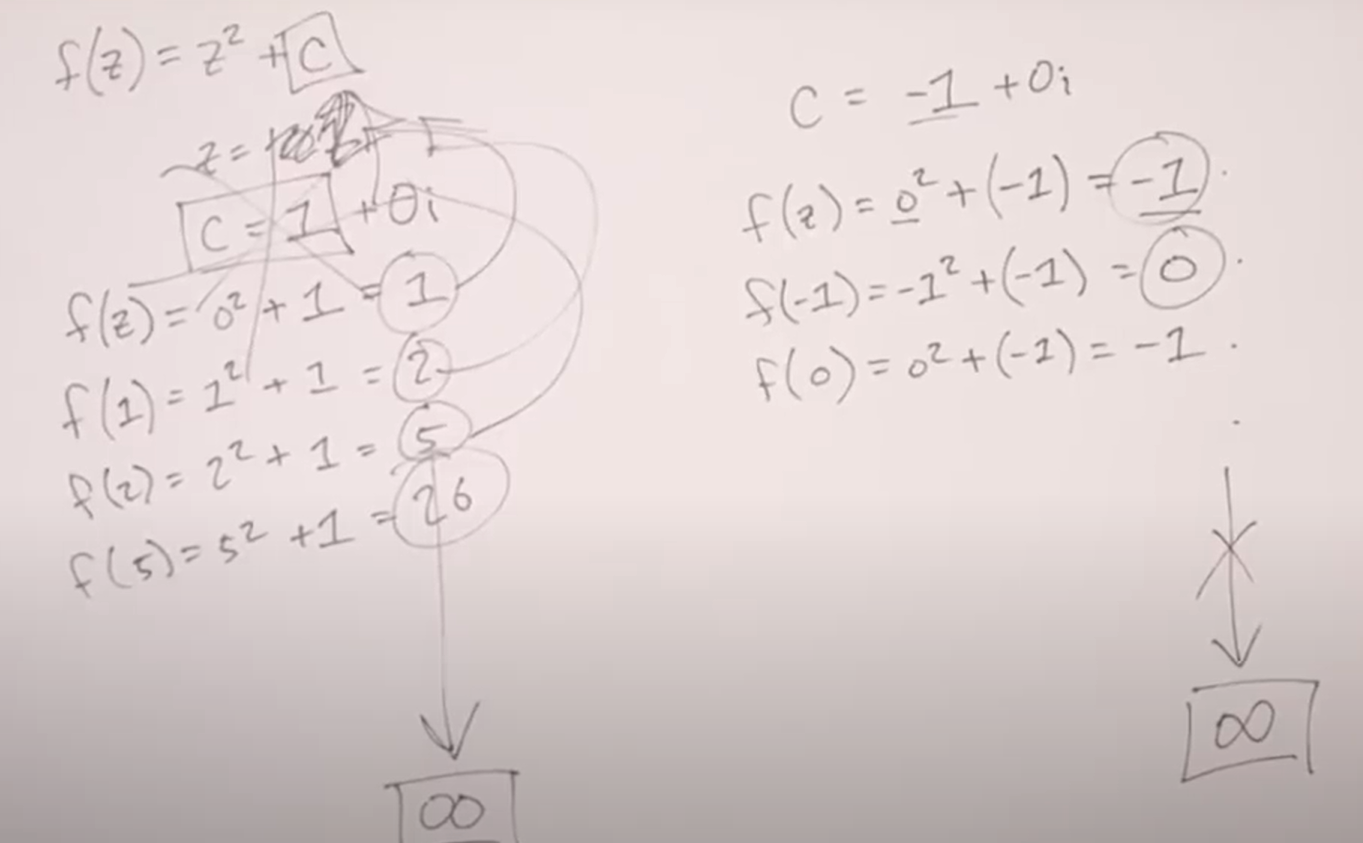 f(z) = z² + C
z =
C = 1 + 0i
f(z) = 0² + 1 = 1
f(1) = 1² + 1 = 2
f(2) = 2² + 1 = 5
f(5) = 5² + 1 = 26
∞
C = -1 + 0i
f(z) = 0² + (-1) = -1
f(-1) = -1² + (-1) = 0
f(0) = 0² + (-1) = -1
∞